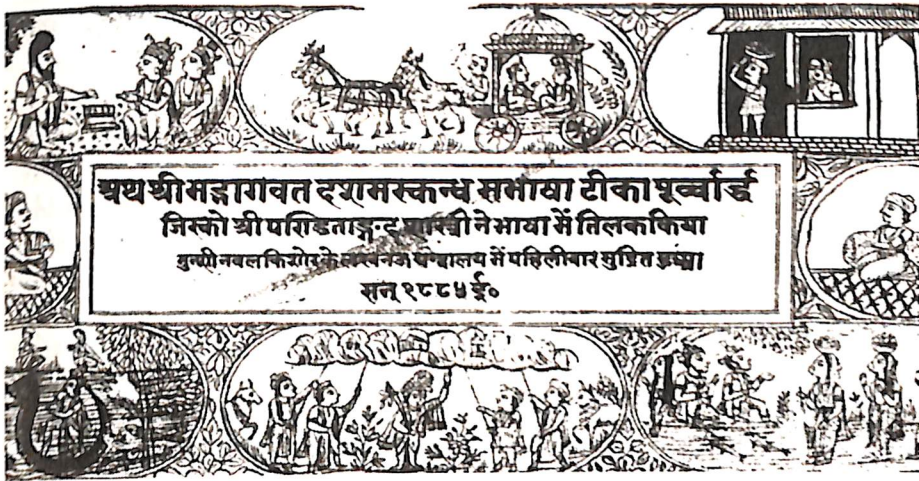 अथ श्रीमद्भागवत दशमस्कन्ध सभाषा टीका पूर्व्वार्द्ध
जिस्को श्री पण्डिताङ्गद शास्त्री ने भाषा में तिलक किया
मुन्शी नवलकिशोर के लखनऊ यन्त्रालय में पहिलीबार मुद्रित हुआ।
सन् १८८५ ई०